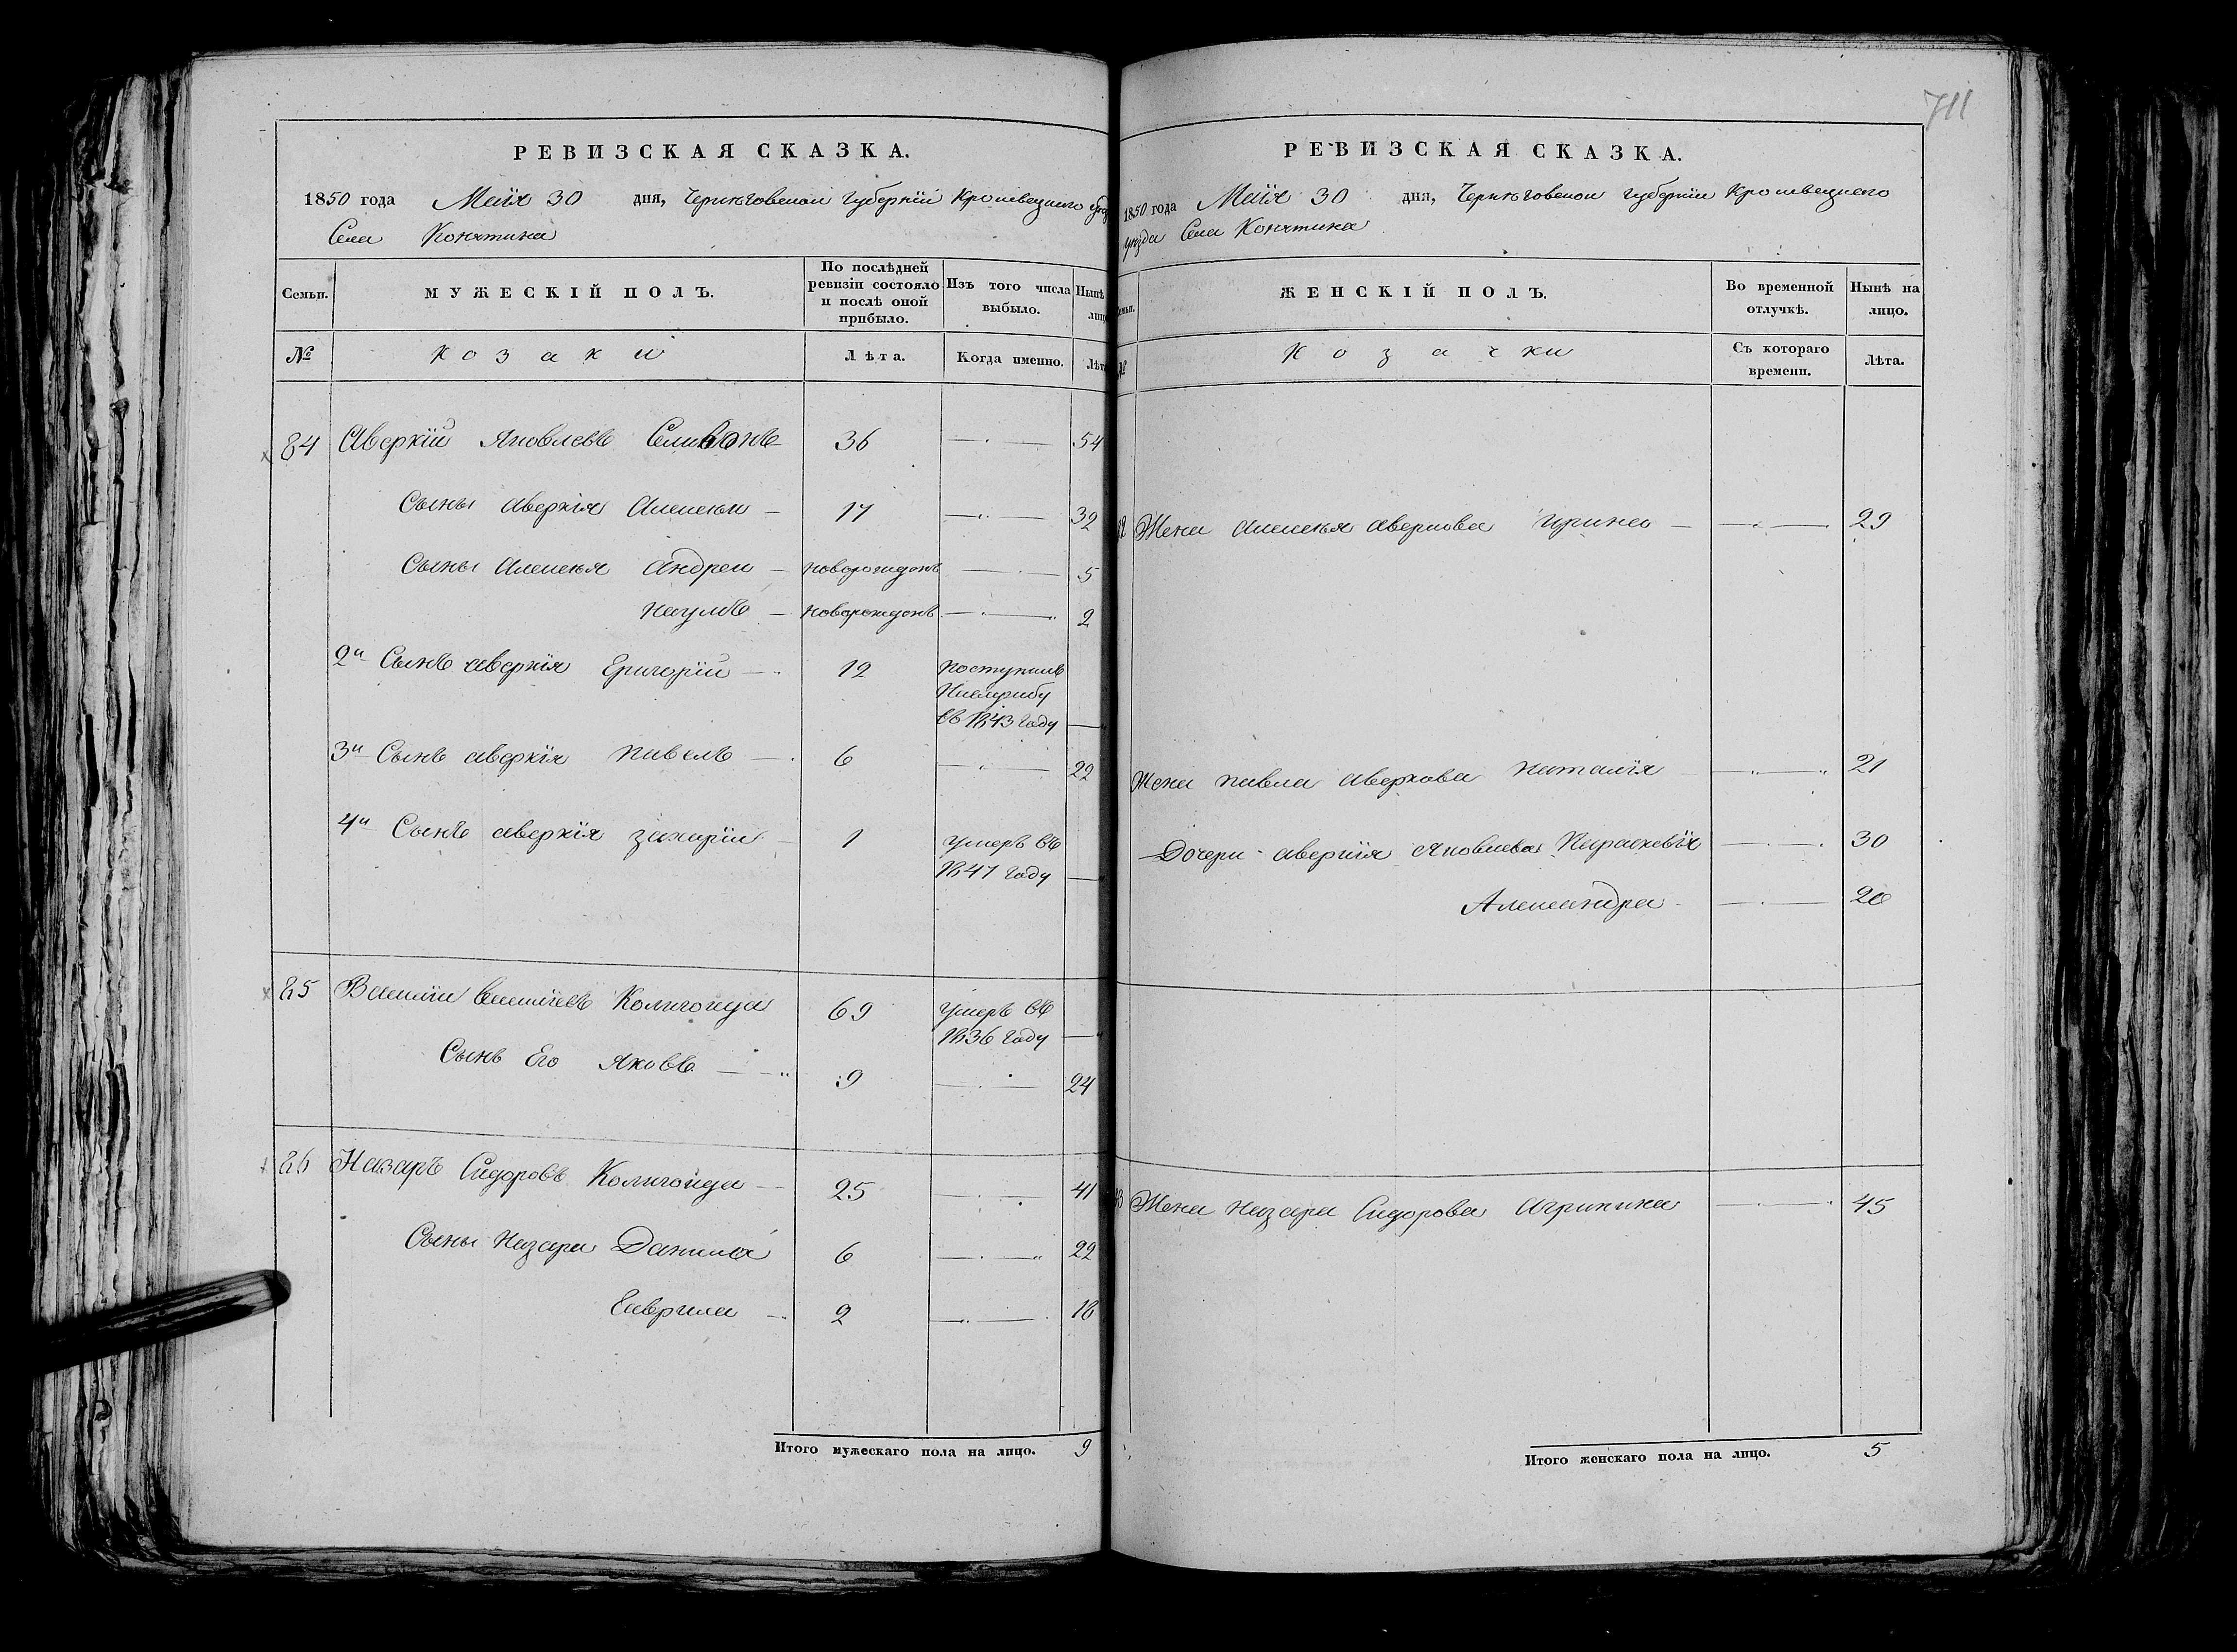 711
РЕВИЗСКАЯ СКАЗКА.
1850 года Маія 30 дня, Черниговской губерніи Кролевецкого уѣзд
Села Конятина
Семьи.
МУЖЕСКІЙ ПОЛЪ.
По послѣдней ревизіи состояло и послѣ оной прибыло.
Изъ того числа выбыло.
Нынѣ лицо
№
Козаки
Лѣта.
Когда именно.
Лѣта
84 Аверкій Яковлевъ Селивонъ 36 54
Сыны аверкія Алексѣй 17 32
Сыны Алексѣя Андрей новорожденъ 5
Наумъ новорожденъ 2
2й Сынъ аверкія Григорій 12 поступилъ
въ 1843 году
3й Сынъ аверкія павелъ 6 22
4й Сынъ аверкія захарій 1 умеръ въ
1847 году
85 Василій васильевъ Колигойда 69 умеръ въ
1836 году
Сынъ Его Яковъ 9 24
86 Назаръ Сидоровъ Колигойда 25 41
Сыны Назара Данила 6 22
Гаврила 2 18
Итого мужескаго пола на лицо. 9
РЕВИЗСКАЯ СКАЗКА.
1850 года Маія 30 дня, Черниговской губерніи Кролевецкого
уѣзда Села Конятина
Семьи.
ЖЕНСКІЙ ПОЛЪ.
Во временной отлучкѣ.
Нынѣ на лицо.
№
Козачки
Съ котораго времени.
Лѣта.
Жена Алексѣя аверкова Ирина 29
Жена павла аверкова Наталія 21
Дочери аверкія Яковлева Параскевія 30
Александра 20
Жена Назара Сидорова Агрипина 45
Итого женскаго пола на лицо. 5